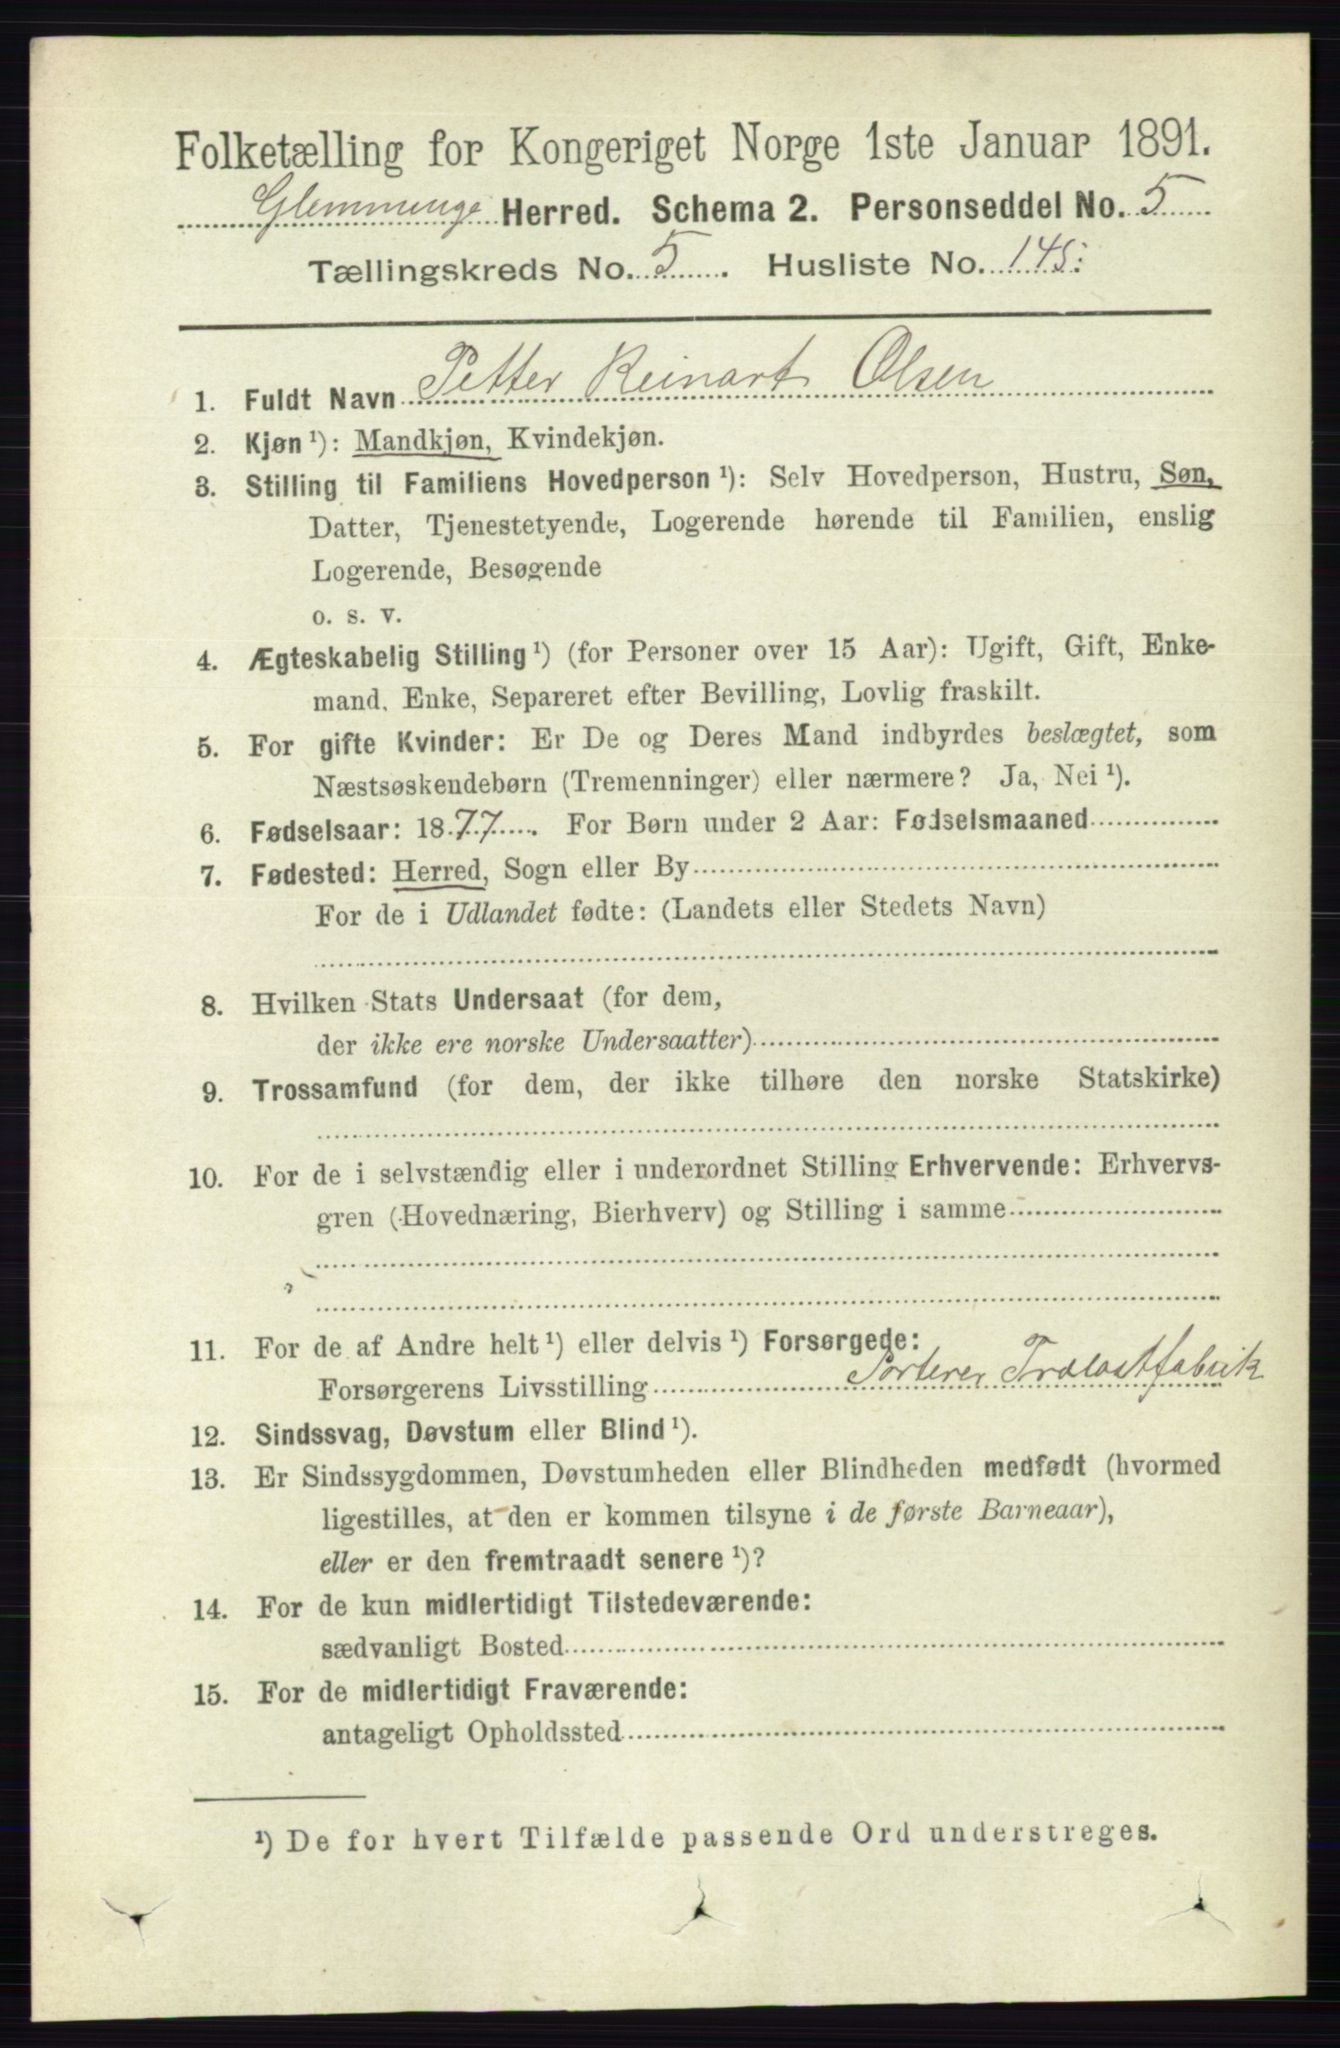 Folketælling for Kongeriget Norge 1ste Januar 1891.
Glemminge Herred. Schema 2. Personseddel No. 5
Tællingskreds No. 5. Husliste No. 145:
1. Fuldt Navn Petter Reinart Olsen
2. Kjøn ¹): Mandkjøn, Kvindekjøn.
3. Stilling til Familiens Hovedperson ¹): Selv Hovedperson, Hustru, Søn,
Datter, Tjenestetyende, Logerende hørende til Familien, enslig
Logerende, Besøgende
o. s. v.
4. Ægteskabelig Stilling ¹) (for Personer over 15 Aar): Ugift, Gift, Enke-
mand, Enke, Separeret efter Bevilling, Lovlig fraskilt.
5. For gifte Kvinder: Er De og Deres Mand indbyrdes beslægtet, som
Næstsøskendebørn (Tremenninger) eller nærmere? Ja, Nei ¹).
6. Fødselsaar: 1877. For Børn under 2 Aar: Fødselsmaaned
7. Fødested: Herred, Sogn eller By
For de i Udlandet fødte: (Landets eller Stedets Navn)
8. Hvilken Stats Undersaat (for dem,
der ikke ere norske Undersaatter)
9. Trossamfund (for dem, der ikke tilhøre den norske Statskirke)
10. For de i selvstændig eller i underordnet Stilling Erhvervende: Erhvervs-
gren (Hovednæring, Bierhverv) og Stilling i samme
11. For de af Andre helt ¹) eller delvis ¹) Forsørgede:
Forsørgerens Livsstilling Sorterer Trælastfabrik
12. Sindssvag, Døvstum eller Blind ¹).
13. Er Sindssygdommen, Døvstumheden eller Blindheden medfødt (hvormed
ligestilles, at den er kommen tilsyne i de første Barneaar),
eller er den fremtraadt senere ¹)?
14. For de kun midlertidigt Tilstedeværende:
sædvanligt Bosted
15. For de midlertidigt Fraværende:
antageligt Opholdssted
¹) De for hvert Tilfælde passende Ord understreges.